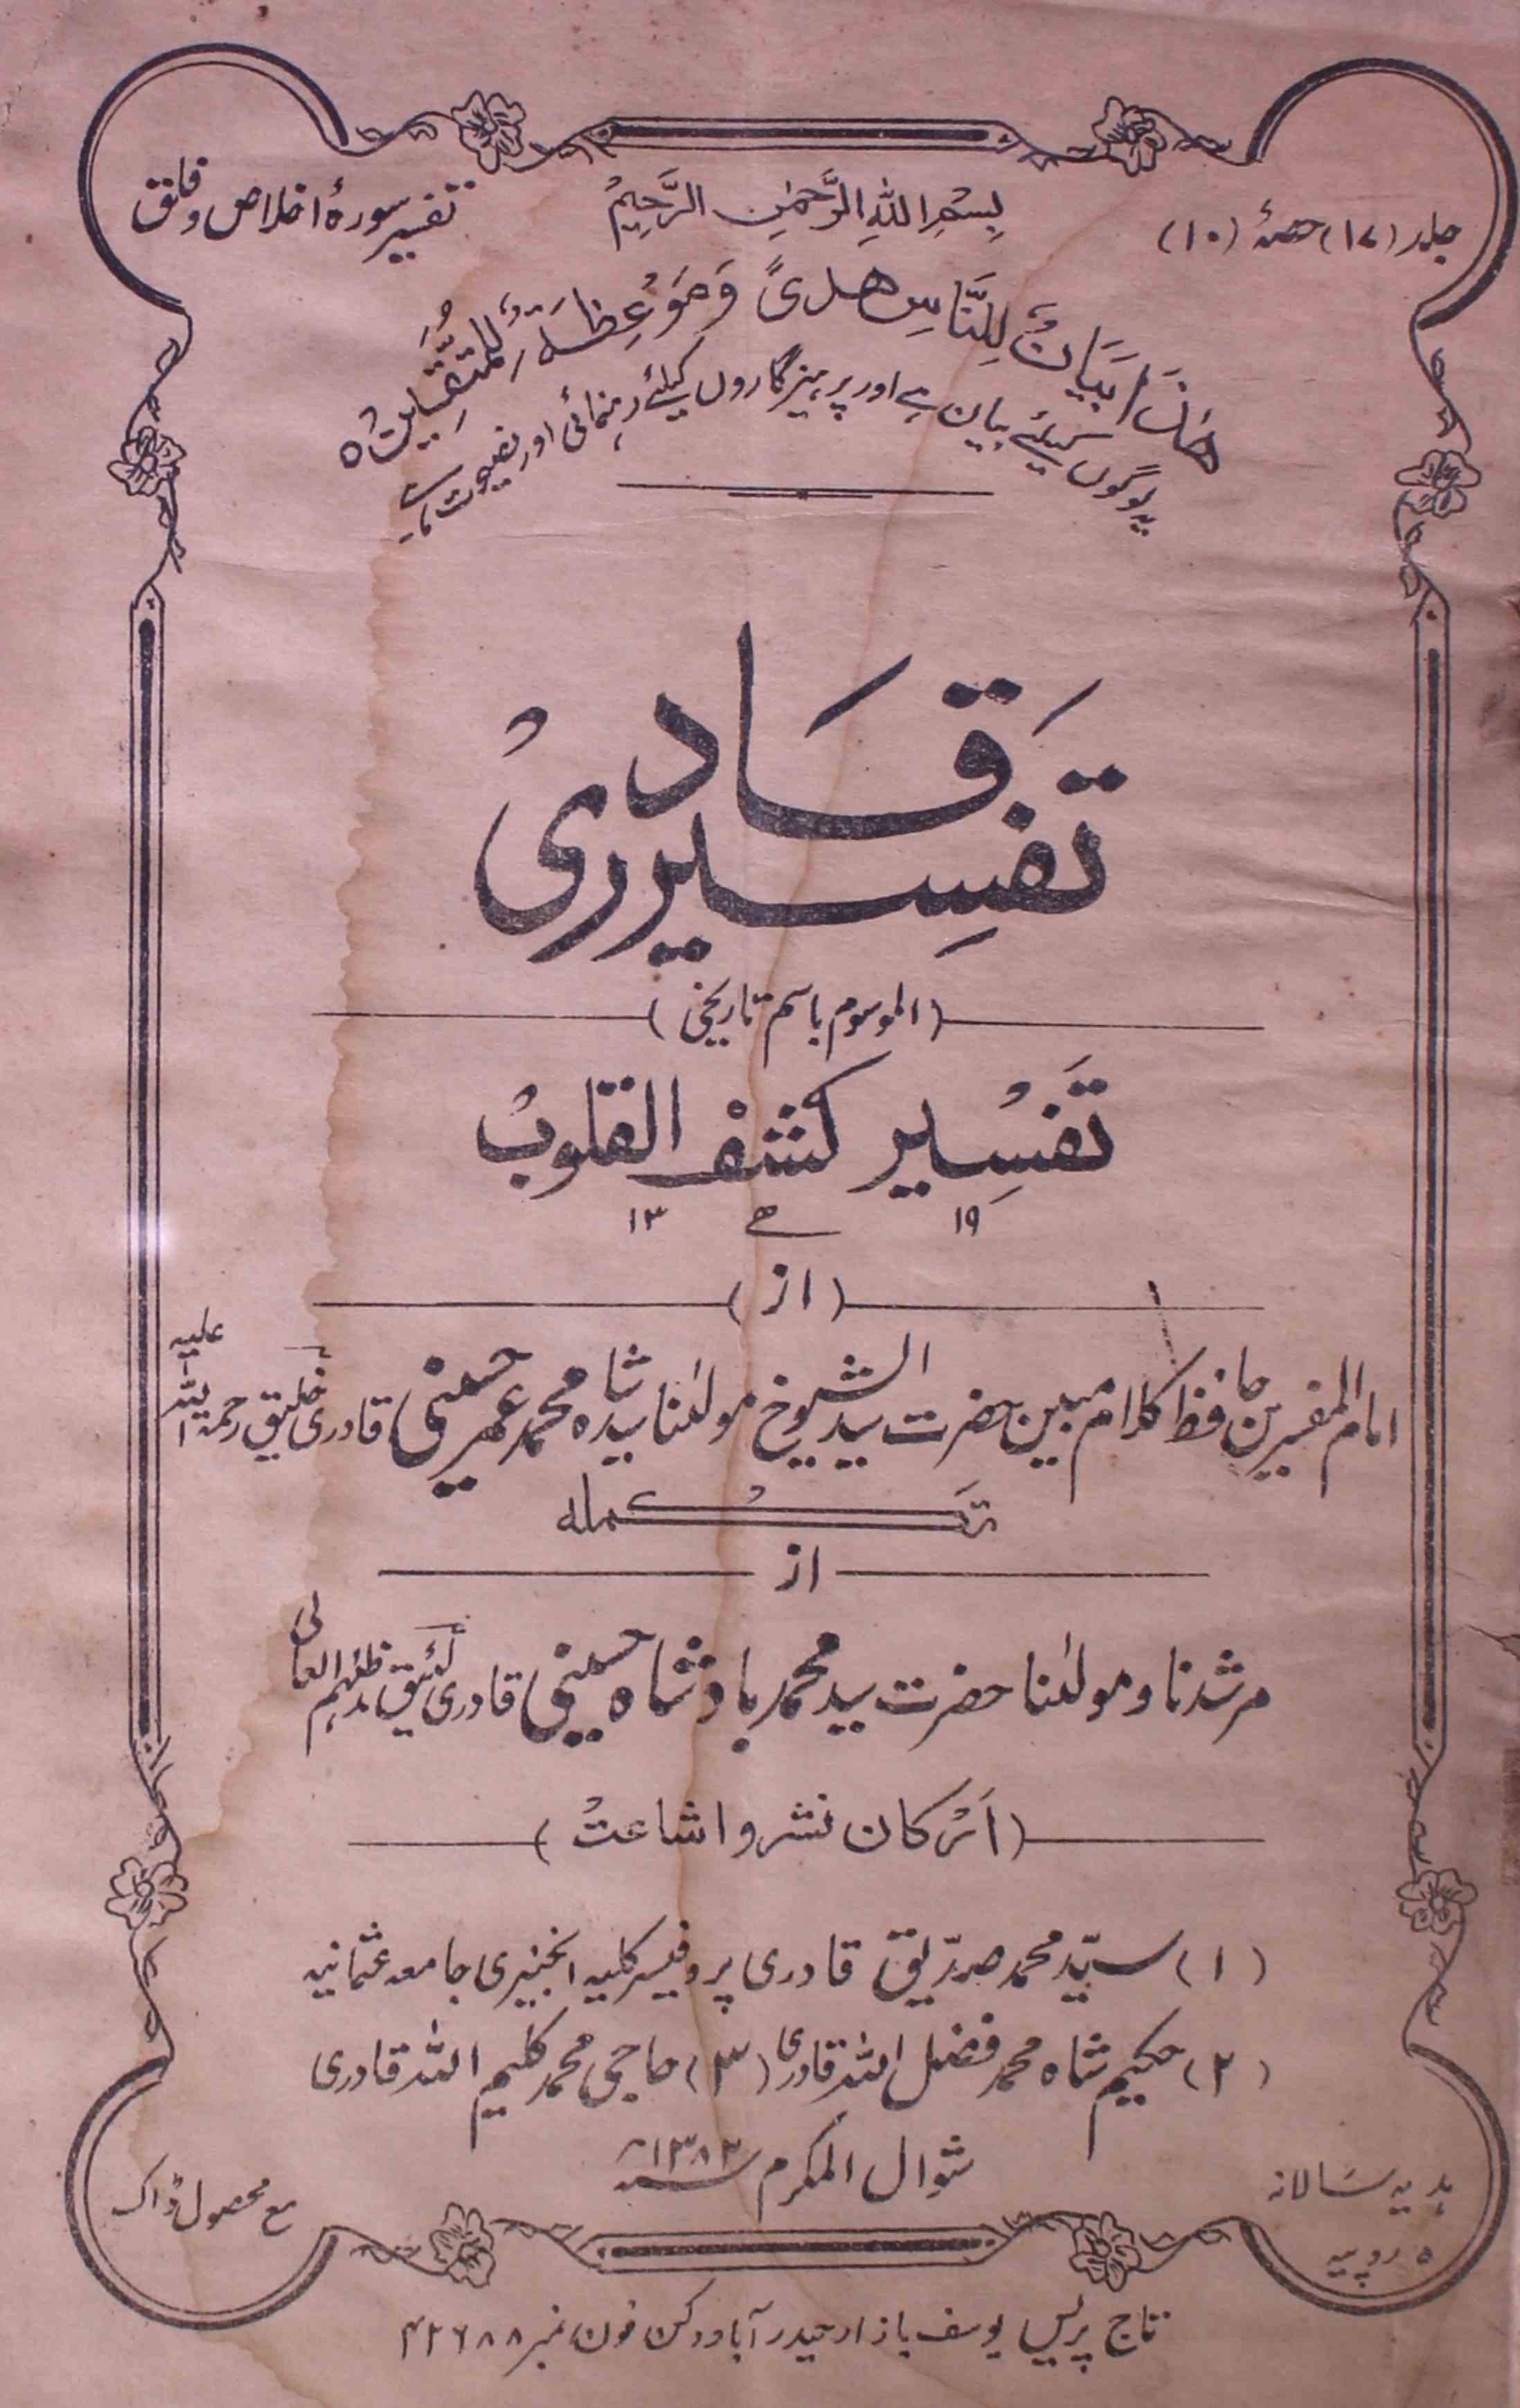 جلد (۱۷) حصۂ (۱۰)
بِسْمِ اللّٰہِ الرَّحْمٰنِ الرَّحِیْمِ
تفسیر سورۂ اخلاص و فلق
ھٰذَا بَیَانٌ لِّلنَّاسِ وَھُدیً وَّمَوْعِظَۃٌ لِّلْمُتَّقِیْنَ ہ
یہ لوگوں کیلئے بیان ہے اور پرہیزگاروں کیلئے رہنمائی اور نصیحت ہے
تفسیر قادری
(الموسوم باسم تاریخی)
تَفْسِیر کشف القلوب
۱۹ ھ ۱۳
(از)
امام المفسرین حافظ کلام مبین حضرت سید الشیوخ مولٰنا سید شاہ محمد عمر حسینی قادری خلیق رحمۃ اللہ علیہ
تکملہ
از
مرشدنا و مولٰنا حضرت سید محمد بادشاہ حسینی قادری لئیق مدظلہم العالی
(ارکان نشر و اشاعت)
(۱) سیّد محمد صدّیق قادری پروفیسر کلیہ انجنیری جامعہ عثمانیہ
(۲) حکیم شاہ محمد فضل اللہ قادری (۳) حاجی محمد کلیم اللہ قادری
شوال المکرم سنہ ۱۳۸۳
ہدیہ سالانہ
۵ روپیہ
مع محصول ڈاک
تاج پریس یوسف بازار حیدرآباد دکن فون نمبر ۴۲۶۸۸